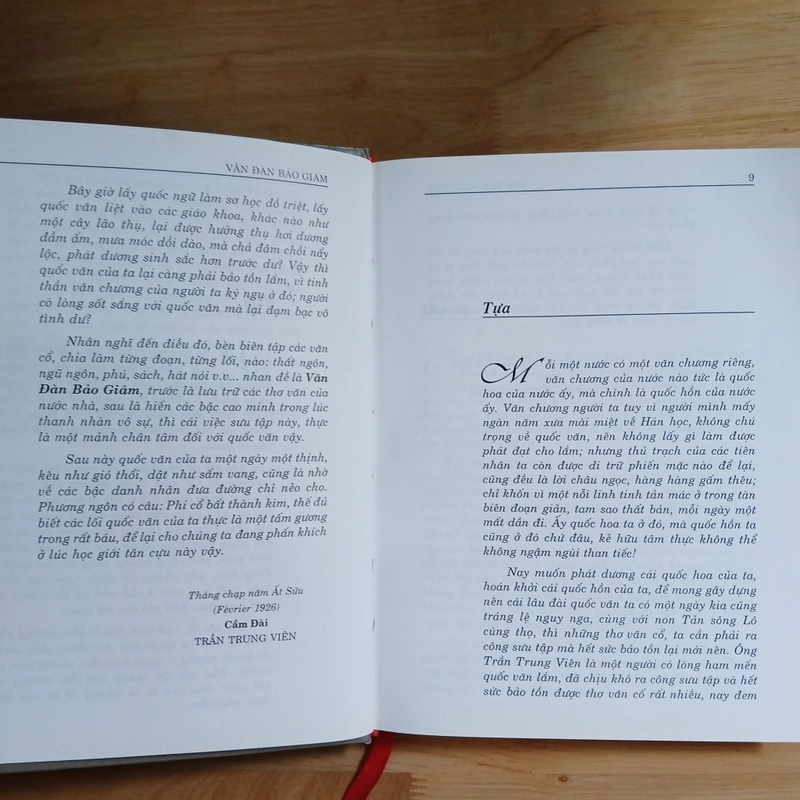 VĂN ĐÀN BẢO GIÁM
Bây giờ lấy quốc ngữ làm sơ học đồ triệt, lấy
quốc văn liệt vào các giáo khoa, khác nào như
một cây lão thụ, lại được hưởng thụ hơi dương
đầm ấm, mưa móc dồi dào, mà chả đâm chồi nẩy
lộc, phát dương sinh sắc hơn trước dư? Vậy thì
quốc văn của ta lại càng phải bảo tồn lắm, vì tinh
thần văn chương của người ta ký ngụ ở đó; người
có lòng sốt sắng với quốc văn mà lại đạm bạc vô
tình dư?
Nhân nghĩ đến điều đó, bèn biên tập các văn
cổ, chia làm từng đoạn, từng lối, nào: thất ngôn,
ngũ ngôn, phú, sách, hát nói v.v... nhan đề là Văn
Đàn Bảo Giám, trước là lưu trữ các thơ văn của
nước nhà, sau là hiến các bậc cao minh trong lúc
thanh nhàn vô sự, thì cái việc sưu tập này, thực
là một mảnh chân tâm đối với quốc văn vậy.
Sau này quốc văn của ta một ngày một thịnh,
kêu như gió thổi, dật như sấm vang, cũng là nhờ
về các bậc danh nhân đưa đường chỉ nẻo cho.
Phương ngôn có câu: Phi cổ bất thành kim, thế đủ
biết các lối quốc văn của ta thực là một tấm gương
trong rất báu, để lại cho chúng ta đang phấn khích
ở lúc học giới tân cựu này vậy.
Tháng chạp năm Ất Sửu
(Fèvrier 1926)
Cẩm Đài
TRẦN TRUNG VIÊN
9
Tựa
Mỗi một nước có một văn chương riêng,
văn chương của nước nào tức là quốc
hoa của nước ấy, mà chính là quốc hồn của nước
ấy. Văn chương người ta tuy vì người mình mấy
ngàn năm xưa mài miệt về Hán học, không chú
trọng về quốc văn, nên không lấy gì làm được
phát đạt cho lắm; nhưng thủ trạch của các tiên
nhân ta còn được di trữ phiến mặc nào để lại,
cũng đều là lời châu ngọc, hàng hàng gấm thêu;
chỉ khốn vì một nỗi linh tinh tản mác ở trong tàn
biên đoạn giản, tam sao thất bản, mỗi ngày một
mất dần đi. Ấy quốc hoa ta ở đó, mà quốc hồn ta
cũng ở đó chứ đâu, kẻ hữu tâm thực không thể
không ngậm ngùi than tiếc!
Nay muốn phát dương cái quốc hoa của ta,
hoán khởi cái quốc hồn của ta, để mong gây dựng
nên cái lâu đài quốc văn ta có một ngày kia cũng
tráng lệ nguy nga, cùng với non Tản sông Lô
cùng thọ, thì những thơ văn cổ, ta cần phải ra
công sưu tập mà hết sức bảo tồn lại mới nên. Ông
Trần Trung Viên là một người có lòng ham mến
quốc văn lắm, đã chịu khó ra công sưu tập và hết
sức bảo tồn được thơ văn cổ rất nhiều, nay đem